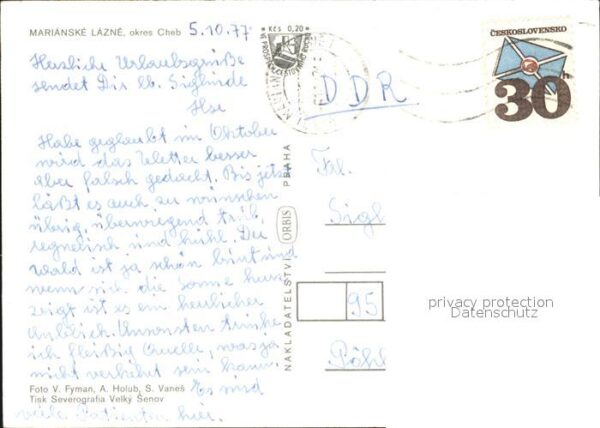 MARIÁNSKÉ LÁZNĚ, okres Cheb 5.10.77
Herzliche Urlaubsgrüße
sendet Dir lb. Siglinde
Ilse
Habe geglaubt im Oktober
wird das Wetter besser
aber falsch gedacht. Bis jetzt
läßt es auch zu wünschen
übrig, überwiegend trüb,
regnerisch und kühl. Der
Wald ist ja schön bunt und
wenn sich die Sonne kurz
zeigt ist es ein herrlicher
Anblick. Ansonsten trinke
ich fleißig Quelle, was ja
nicht verkehrt sein kann.
Es sind
viele Patienten hier.
Foto V. Fyman, A. Holub, S. Vaneš
Tisk Severografia Velký Šenov
NAKLADATELSTVÍ ORBIS PRAHA
Kčs 0,20
ČESKOSLOVENSKO
30h
DDR
Frl.
Sigl
95
Pöhl
privacy protection
Datenschutz